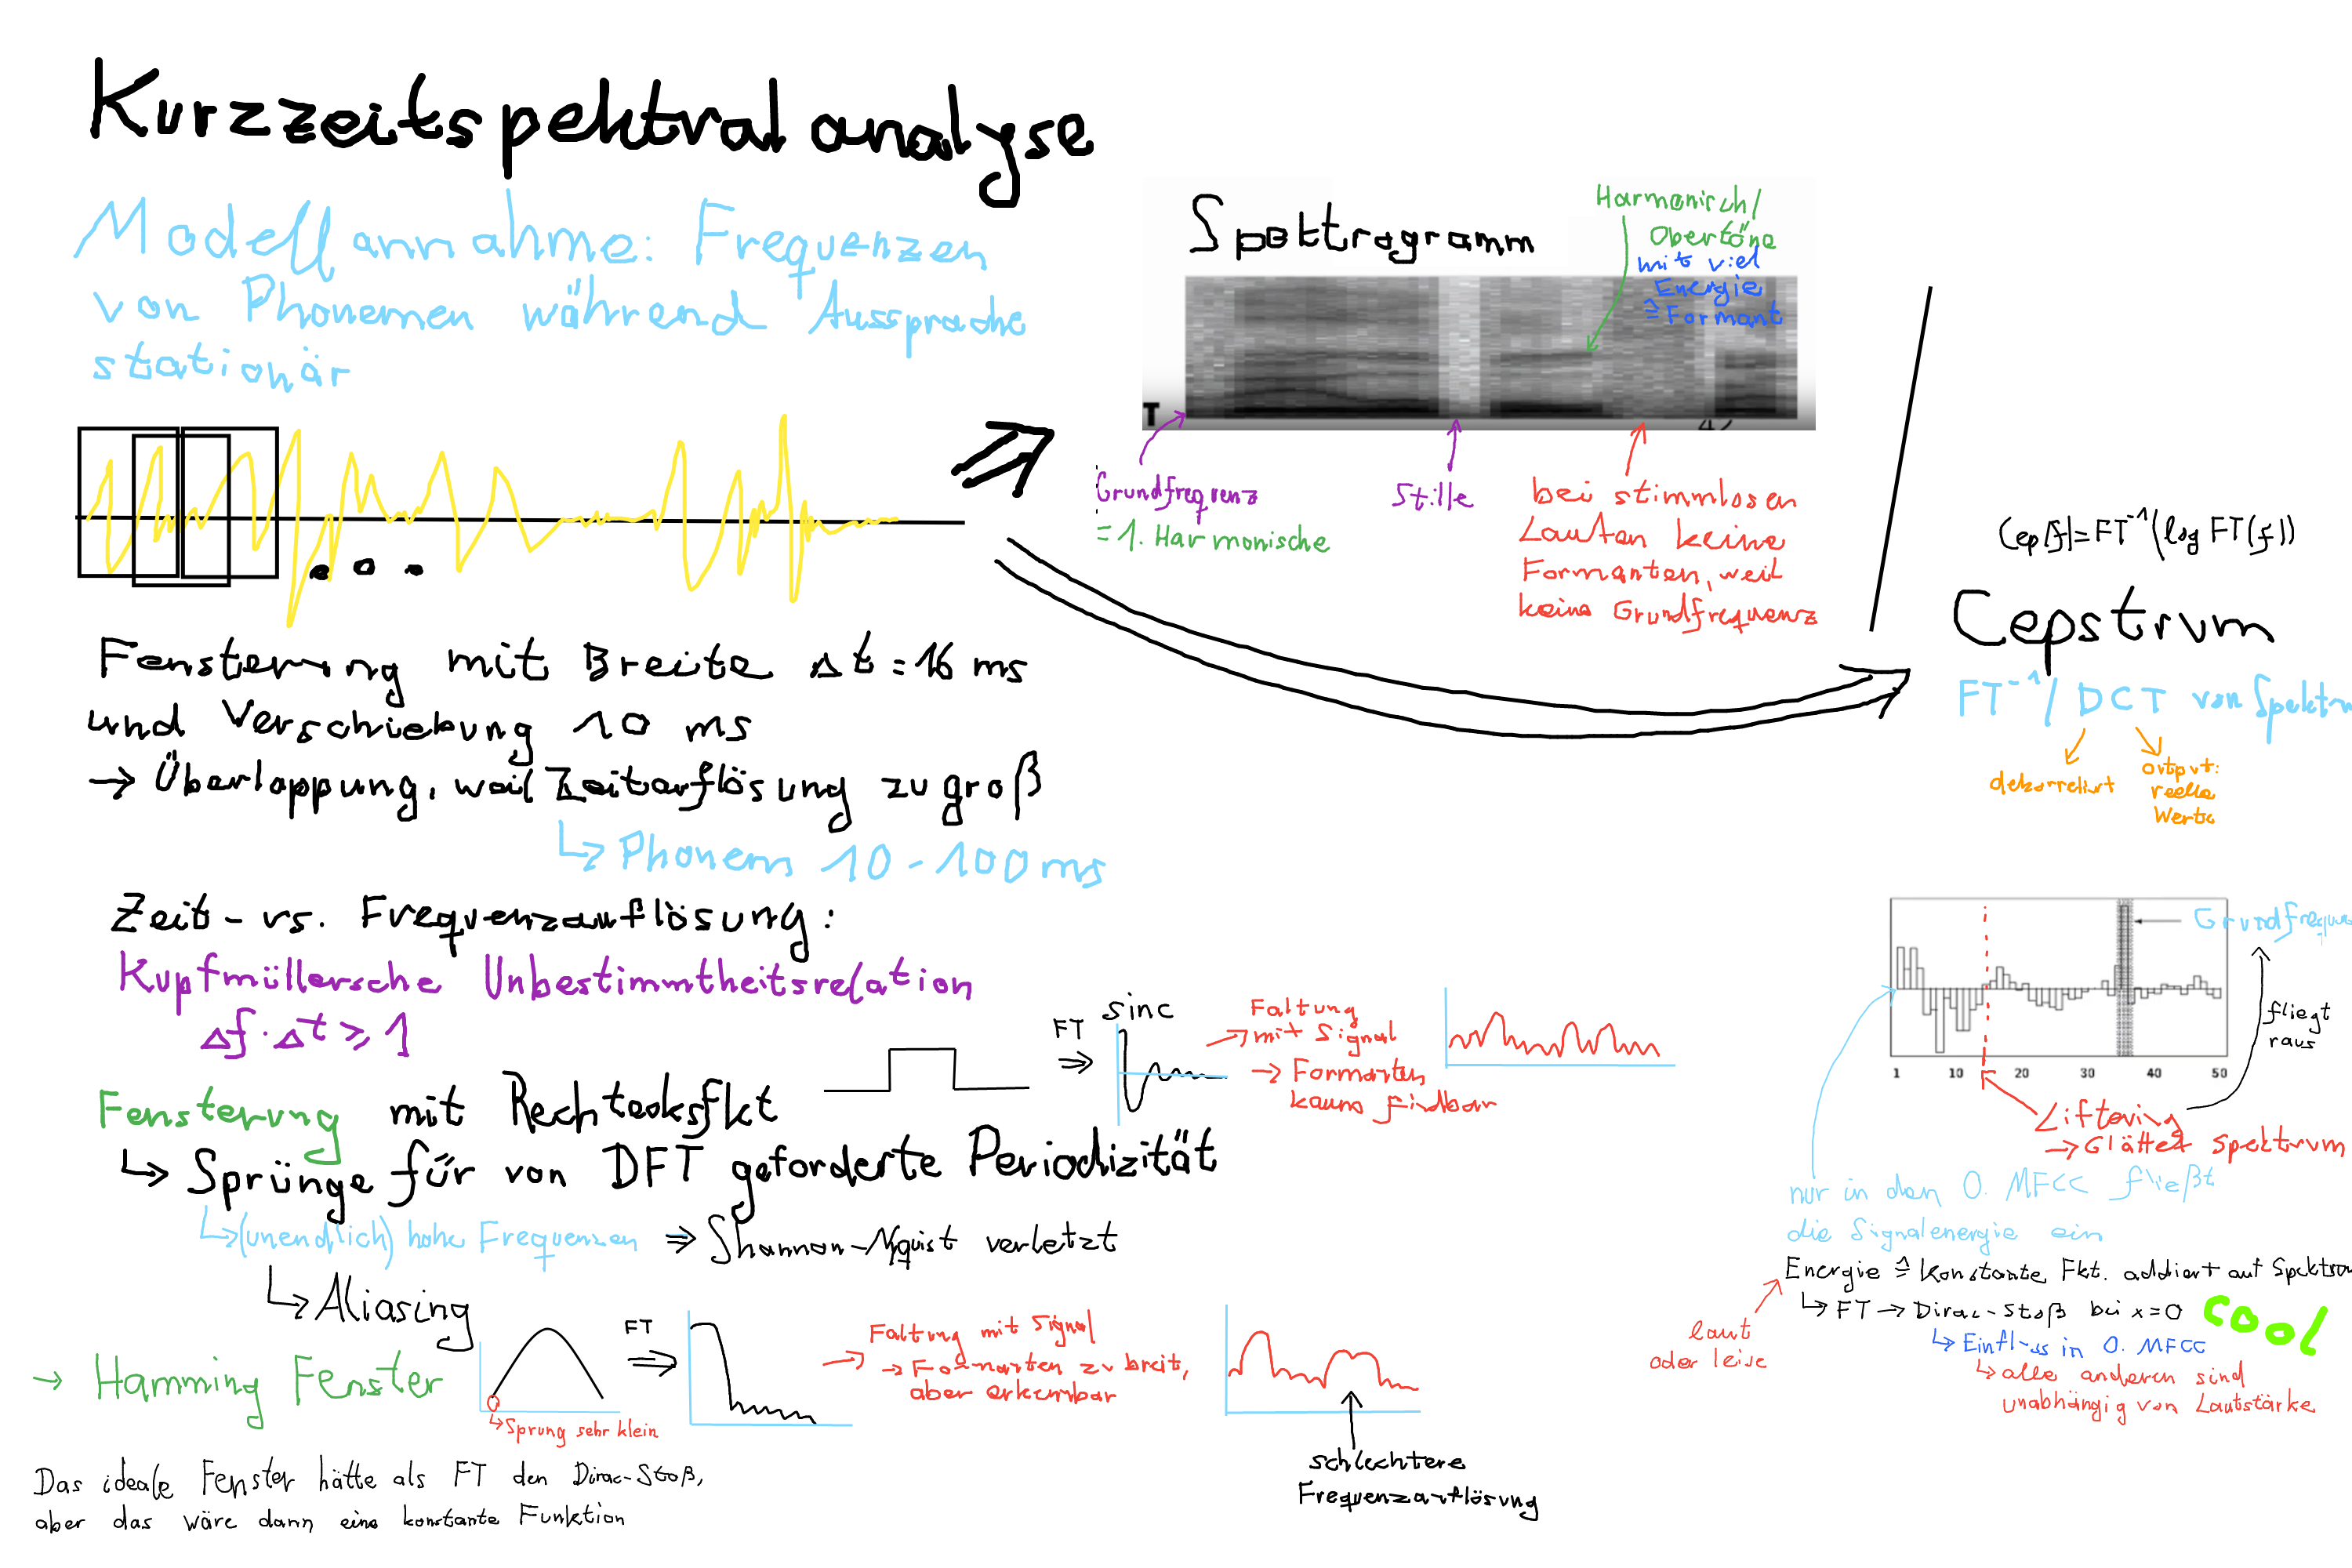 Kurzzeitspektralanalyse
Modellannahme: Frequenzen
von Phonemen während Aussprache
stationär
Fensterung mit Breite Δt = 16 ms
und Verschiebung 10 ms
→ Überlappung, weil Zeitauflösung zu groß
↳ Phonem 10-100 ms
Zeit- vs. Frequenzauflösung:
Kupfmüllersche Unbestimmtheitsrelation
Δf · Δt ≥ 1
Fensterung mit Rechtecksfkt
↳ Sprünge für von DFT geforderte Periodizität
↳ (unendlich) hohe Frequenzen ⇒ Shannon-Nyquist verletzt
↳ Aliasing
FT
⇒
sinc
Faltung
→ mit Signal
→ Formanten
kaum findbar
→ Hamming Fenster
↳ Sprung sehr klein
FT
⇒
Faltung mit Signal
→ Formanten zu breit,
aber erkennbar
schlechtere
Frequenzauflösung
Das ideale Fenster hätte als FT den Dirac-Stoß,
aber das wäre dann eine konstante Funktion
Spektrogramm
Harmonisch/
Obertöne
mit viel
Energie
≙ Formant
T
42
Grundfrequenz
= 1. Harmonische
Stille
bei stimmlosen
Lauten keine
Formanten, weil
keine Grundfrequenz
Cep(f) = FT⁻¹(log FT(f))
Cepstrum
FT⁻¹ / DCT von Spektru
dekorreliert
output:
reelle
Werte
Grundfreque
1 10 20 30 40 50
fliegt
raus
Liftering
→ Glättet Spektrum
nur in den 0. MFCC fließt
die Signalenergie ein
Energie ≙ Konstante Fkt. addiert auf Spektru
↳ FT → Dirac-Stoß bei x=0 cool
↳ Einfluss in 0. MFCC
↳ alle anderen sind
unabhängig von Lautstärke
laut
oder leise